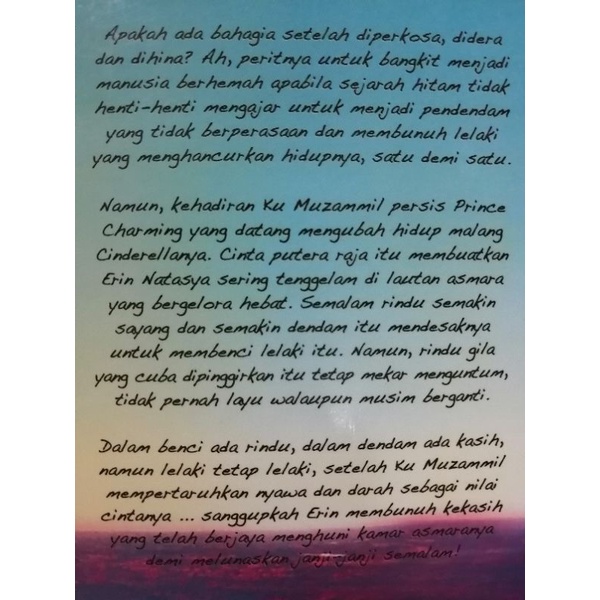 Apakah ada bahagia setelah diperkosa, didera
dan dihina? Ah, peritnya untuk bangkit menjadi
manusia berhemah apabila sejarah hitam tidak
henti-henti mengajar untuk menjadi pendendam
yang tidak berperasaan dan membunuh lelaki
yang menghancurkan hidupnya, satu demi satu.
Namun, kehadiran Ku Muzammil persis Prince
Charming yang datang mengubah hidup malang
Cinderellanya. Cinta putera raja itu membuatkan
Erin Natasya sering tenggelam di lautan asmara
yang bergelora hebat. Semalam rindu semakin
sayang dan semakin dendam itu mendesaknya
untuk membenci lelaki itu. Namun, rindu gila
yang cuba dipinggirkan itu tetap mekar menguntum,
tidak pernah layu walaupun musim berganti.
Dalam benci ada rindu, dalam dendam ada kasih,
namun lelaki tetap lelaki, setelah Ku Muzammil
mempertaruhkan nyawa dan darah sebagai nilai
cintanya ... sanggupkah Erin membunuh kekasih
yang telah berjaya menghuni kamar asmaranya
demi melunaskan janji-janji semalam!